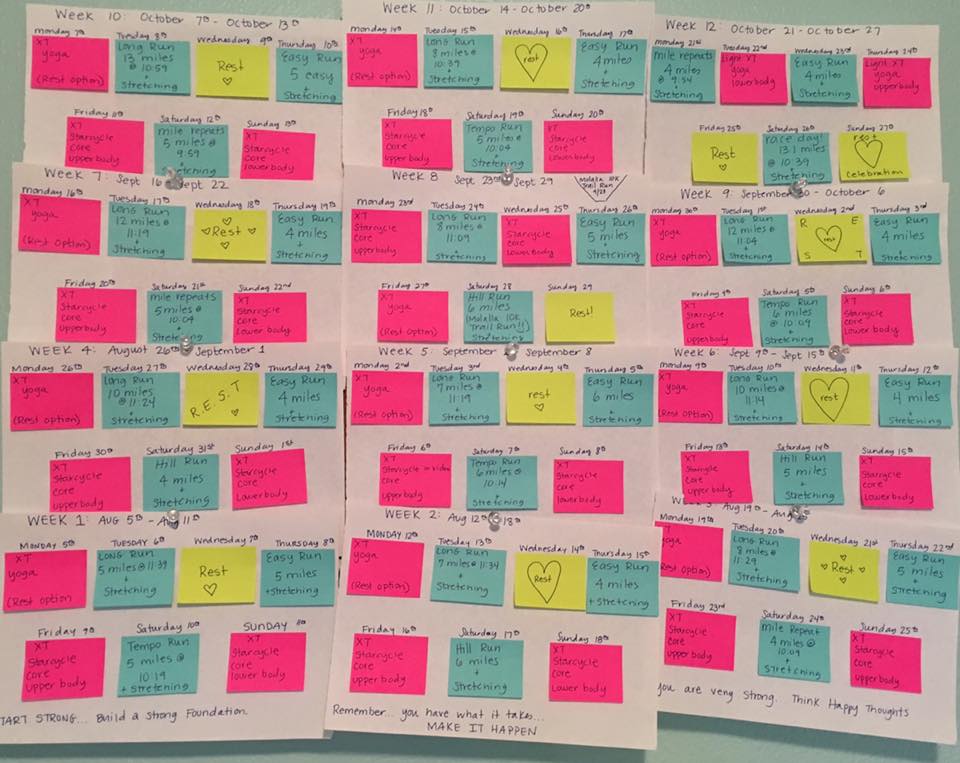 Week 10: October 7th - October 13th
Monday 7th
XT
yoga
(Rest option)
Tuesday 8th
Long Run
13 miles
@ 10:59
+
Stretching
Wednesday 9th
Rest
Thursday 10th
Easy Run
5 easy
+
Stretching
Friday 11th
XT
Starcycle
core
upperbody
Saturday 12th
mile repeats
5 miles @
9:59
+
Stretching
Sunday 13th
XT
Starcycle
core
lowerbody
Week 11: October 14 - October 20th
Monday 14th
XT
yoga
(Rest option)
Tuesday 15th
Long Run
8 miles @
10:39
+
Stretching
Wednesday 16th
rest
Thursday 17th
Easy Run
4 miles
+
Stretching
Friday 18th
XT
Starcycle
core
upperbody
Saturday 19th
Tempo Run
5 miles @
10:04
+
Stretching
Sunday 20th
XT
Starcycle
core
Lowerbody
Week 12: October 21 - October 27
Monday 21st
mile repeats
4 miles
@ 9:54
+
Stretching
Tuesday 22nd
Light XT
yoga
lowerbody
Wednesday 23rd
Easy Run
4 miles
+
Stretching
Thursday 24th
Light XT
yoga
upperbody
Friday 25th
Rest
Saturday 26th
race day!
13.1 miles
@ 10:39
+
Stretching
Sunday 27th
rest
+
Celebration
Week 7: Sept 16 Sept 22
Monday 16th
XT
yoga
(Rest option)
Tuesday 17th
Long Run
12 miles @
11:19
+
Stretching
Wednesday 18th
Rest
Thursday 19th
Easy Run
4 miles
+
Stretching
Friday 20th
XT
Starcycle
core
upperbody
Saturday 21st
mile repeats
5 miles @
10:04
+
Stretching
Sunday 22nd
XT
Starcycle
core
Lower body
Week 8 Sept 23rd Sept 29
Molalla 10K
Trail Run
9/28
monday 23rd
XT
Starcycle
core
upperbody
Tuesday 24th
Long Run
8 miles @
11:09
+
Stretching
Wednesday 25th
XT
Starcycle
core
Lowerbody
Thursday 26th
Easy Run
5 miles
+
Stretching
Friday 27th
XT
yoga
(Rest option)
Saturday 28
Hill Run
6 miles
(Molalla 10K
Trail Run!!)
Stretching
Sunday 29
Rest!
Week 9: September - October 6
Monday 30th
XT
yoga
(Rest option)
Tuesday 1st
Long Run
12 miles @
11:04
+
Stretching
Wednesday 2nd
R E
rest
S T
Thursday 3rd
Easy Run
4 miles
+
Stretching
Friday 4th
XT
Starcycle
core
upperbody
Saturday 5th
Tempo Run
6 miles
@ 10:09
+
Stretching
Sunday 6th
XT
Starcycle
core
Lowerbody
WEEK 4: August 26th September 1
Monday 26th
XT
yoga
(Rest option)
Tuesday 27th
Long Run
10 miles
@ 11:24
+
Stretching
Wednesday 28th
R.E.S.T
Thursday 29th
Easy Run
4 miles
+
Stretching
Friday 30th
XT
Starcycle
core
upperbody
Saturday 31st
Hill Run
4 miles
+
Stretching
Sunday 1st
XT
Starcycle
core
Lowerbody
Week 5: September September 8
monday 2nd
XT
yoga
(Rest option)
Tuesday 3rd
Long Run
7 miles @
11:19
+
Stretching
Wednesday 4th
rest
Thursday 5th
Easy Run
6 miles
+
Stretching
Friday 6th
XT
core
upperbody
Saturday 7th
Tempo Run
6 miles @
10:14
+
Stretching
Sunday 8th
XT
Starcycle
core
Lowerbody
Week 6: Sept 9th - Sept 15th
monday 9th
XT
yoga
(Rest option)
Tuesday 10th
Long Run
10 miles @
11:14
+
Stretching
Wednesday 11th
rest
Thursday 12th
Easy Run
4 miles
+
Stretching
Friday 13th
XT
Starcycle
core
upperbody
Saturday 14th
Hill Run
5 miles
+
Stretching
Sunday 15th
XT
Starcycle
core
lowerbody
WEEK 1: AUG 5th - Aug 11th
MONDAY 5th
XT
yoga
(Rest option
TUESDAY 6th
LONG RUN
5 miles @ 11:39
+
Stretching
Wednesday 7th
Rest
THURSDAY 8th
Easy Run
5 miles
+ Stretching
Friday 9th
XT
Starcycle
core
upper body
Saturday 10th
Tempo Run
5 miles @
10:19
+ Stretching
SUNDAY 11th
XT
Starcycle
core
lower body
TART STRONG... Build a Strong Foundation.
WEEK 2: Aug 12th 18th
MONDAY 12th
XT
yoga
(Rest option)
Tuesday 13th
Long Run
7 miles @ 11:34
+
Stretching
Wednesday 14th
Rest
Thursday 15th
Easy Run
4 miles
+ Stretching
Friday 16th
XT
Starcycle
core
upper body
Saturday 17th
Hill Run
6 miles
+
Stretching
Sunday 18th
XT
Starcycle
core
lower body
Remember... you have what it takes...
MAKE IT HAPPEN
3: Aug 19th
Monday 19th
XT
yoga
(Rest option)
Tuesday 20th
Long Run
8 miles @
11:29
+
Stretching
Wednesday 21st
Rest
Thursday 22nd
Easy Run
5 miles
+
Stretching
Friday 23rd
XT
Starcycle
core
upperbody
Saturday 24th
mile Repeat
4 miles @
10:09
+
Stretching
Sunday 25th
XT
Starcycle
core
lowerbody
you are very strong. Think Happy Thoughts